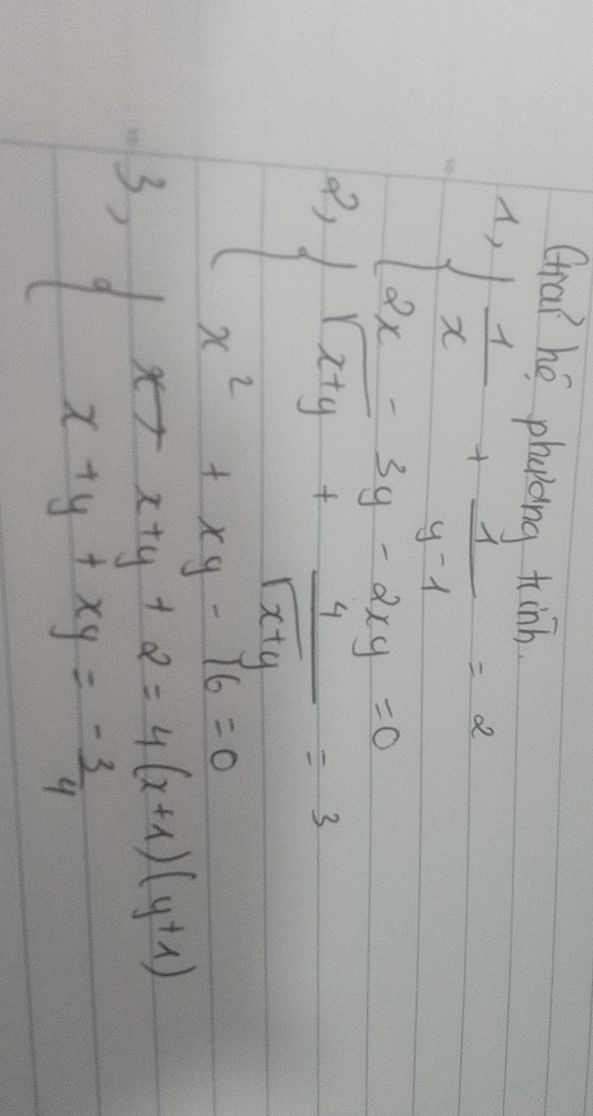 Giải hệ phương trình.
1, { 1/x + 1/(y-1) = 2
{ 2x - 3y - 2xy = 0
2, { √(x+y) + 4/√(x+y) = 3
{ x² + xy - 76 = 0
3, { x+y + 2 = 4(x+1)(y+1)
{ x+y + xy = -3/4